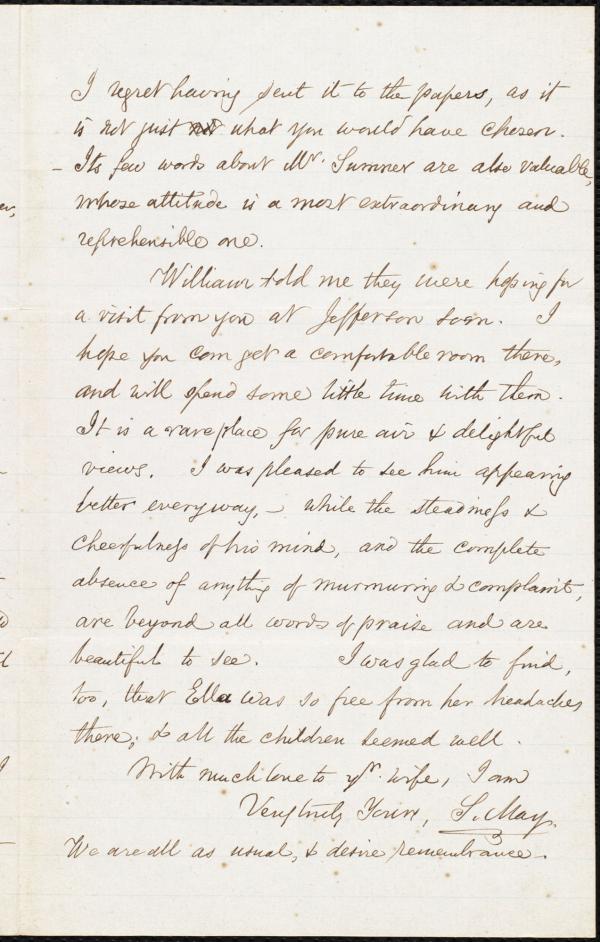 I regret having sent it to the papers, as it
is not just what you would have chosen.
– Its few words about Mr. Sumner are also valuable,
whose attitude is a most extraordinary and
reprehensible one.
William told me they were hoping for
a visit from you at Jefferson soon. I
hope you can get a comfortable room there,
and will spend some little time with them.
It is a rare place for pure air & delightful
views. I was pleased to see him appearing
better everyway, – while the steadiness &
cheerfulness of his mind, and the complete
absence of anything of murmuring & complaint,
are beyond all words of praise and are
beautiful to see. I was glad to find,
too, that Ella was so free from her headaches
there; & all the children seemed well.
With much love to yr. wife, I am
Very truly Yours, S. May.
We are all as usual, & desire remembrance.